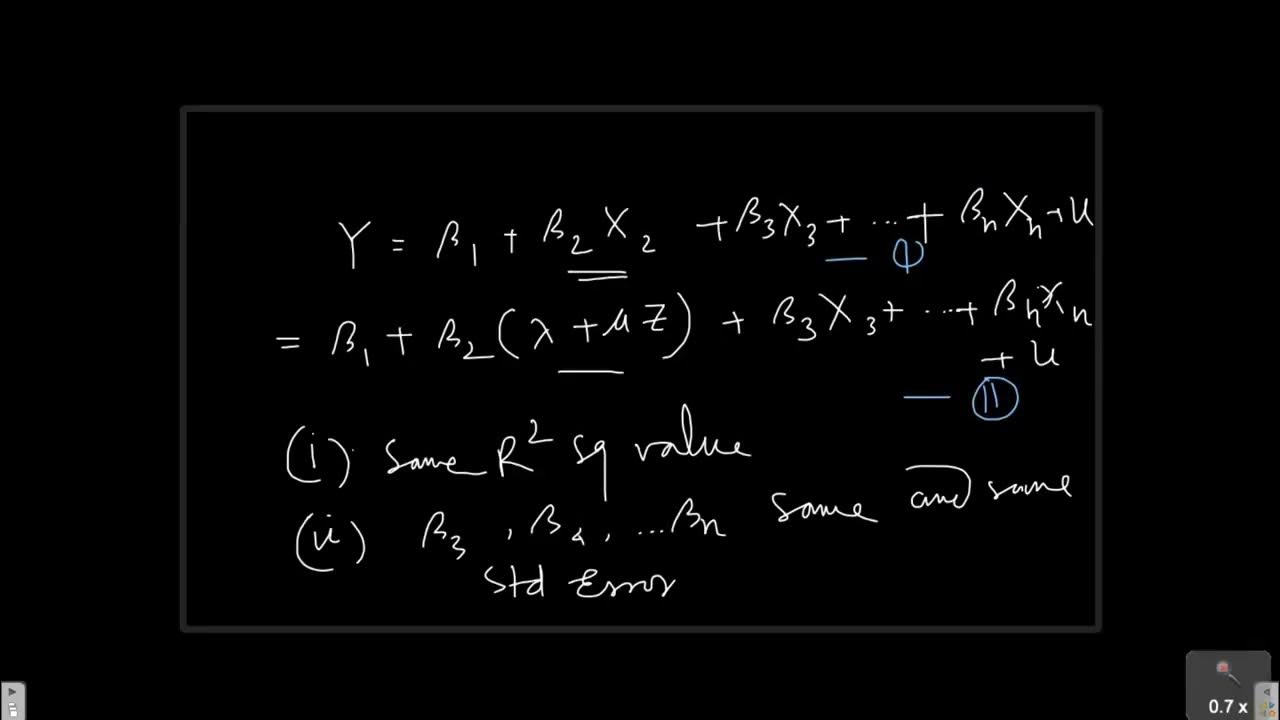 Y = β₁ + β₂X₂ + β₃X₃ + ... + βₙXₙ + u
— I
= β₁ + β₂(λ + μZ) + β₃X₃ + ... + βₙXₙ
+ u
— II
(i) same R² sq value
(ii) β₃, β₄, ... βₙ same and same
Std Error
0.7 x